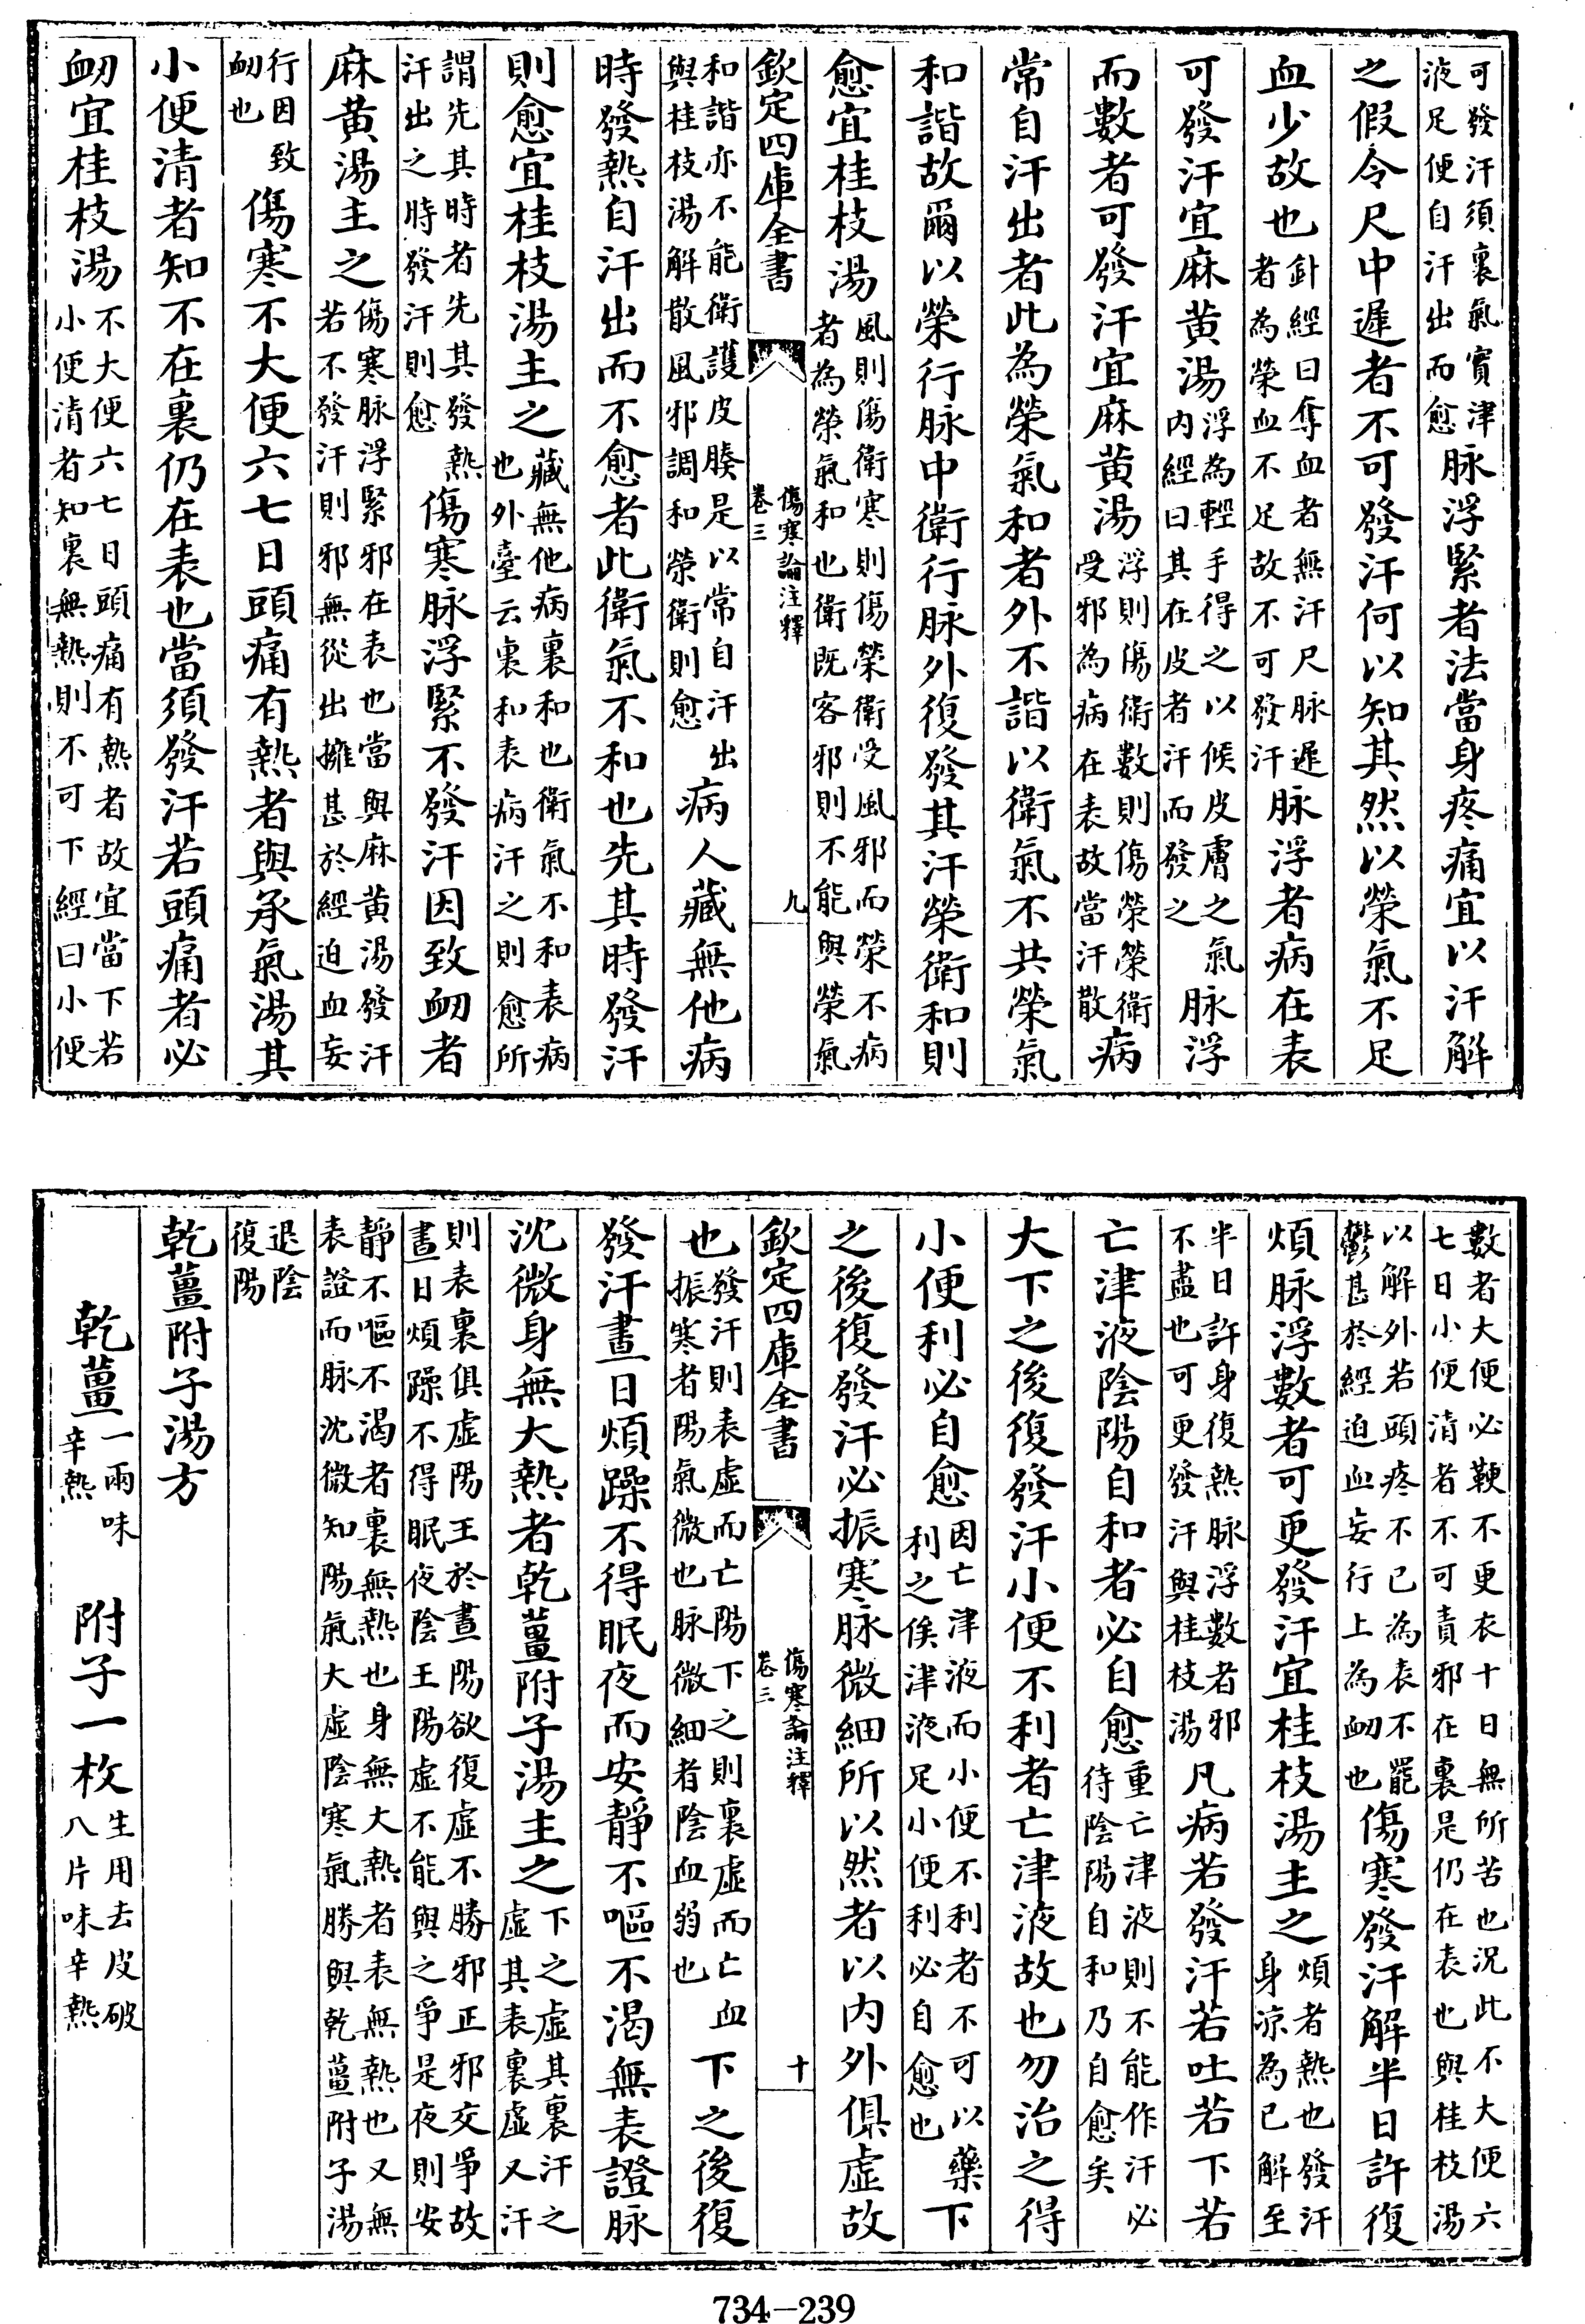 可發汗須裏氣實津液足便自汗出而愈脉浮緊者法當身疼痛宜以汗解
之假令尺中遲者不可發汗何以知其然以榮氣不足
血少故也針經曰奪血者無汗尺脉遲者為榮血不足故不可發汗脉浮者病在表
可發汗宜麻黄湯浮為輕手得之以候皮膚之氣内經曰其在皮者汗而發之脉浮
而數者可發汗宜麻黄湯浮則傷衛數則傷榮榮衛受邪為病在表故當汗散病
常自汗出者此為榮氣和者外不諧以衛氣不共榮氣
和諧故爾以榮行脉中衛行脉外復發其汗榮衛和則
愈宜桂枝湯風則傷衛寒則傷榮衛受風邪而榮不病者為榮氣和也衛既客邪則不能與榮氣
欽定四庫全書 傷寒論注釋 卷三 九
和諧亦不能衛護皮腠是以常自汗出與桂枝湯解散風邪調和榮衛則愈病人藏無他病
時發熱自汗出而不愈者此衛氣不和也先其時發汗
則愈宜桂枝湯主之藏無他病裏和也衛氣不和表病也外臺云裏和表病汗之則愈所
謂先其時者先其發熱汗出之時發汗則愈傷寒脉浮緊不發汗因致衂者
麻黄湯主之傷寒脉浮緊邪在表也當與麻黄湯發汗若不發汗則邪無從出擁甚於經迫血妄
行因致衂也傷寒不大便六七日頭痛有熱者與承氣湯其
小便清者知不在裏仍在表也當須發汗若頭痛者必
衂宜桂枝湯不大便六七日頭痛有熱者故宜當下若小便清者知裏無熱則不可下經曰小便
數者大便必鞕不更衣十日無所苦也況此不大便六七日小便清者不可責邪在裏是仍在表也與桂枝湯
以解外若頭疼不已為表不罷鬱甚於經迫血妄行上為衂也傷寒發汗解半日許復
煩脉浮數者可更發汗宜桂枝湯主之煩者熱也發汗身凉為已解至
半日許身復熱脉浮數者邪不盡也可更發汗與桂枝湯凡病若發汗若吐若下若
亡津液陰陽自和者必自愈重亡津液則不能作汗必待陰陽自和乃自愈矣
大下之後復發汗小便不利者亡津液故也勿治之得
小便利必自愈因亡津液而小便不利者不可以藥利之俟津液足小便利必自愈也下
之後復發汗必振寒脉微細所以然者以内外俱虛故
欽定四庫全書 傷寒論注釋 卷三 十
也發汗則表虛而亡陽下之則裏虛而亡血振寒者陽氣微也脉微細者陰血弱也下之後復
發汗晝日煩躁不得眠夜而安靜不嘔不渴無表證脉
沈微身無大熱者乾薑附子湯主之下之虛其裏汗之虛其表裏虛又汗
則表裏俱虛陽王於晝陽欲復虛不勝邪正邪交爭故晝日煩躁不得眠夜陰王陽虛不能與之爭是夜則安
靜不嘔不渴者裏無熱也身無大熱者表無熱也又無表證而脉沈微知陽氣大虛陰寒氣勝與乾薑附子湯
退陰復陽
乾薑附子湯方
乾薑一兩味辛熱 附子一枚生用去皮破八片味辛熱
734—239